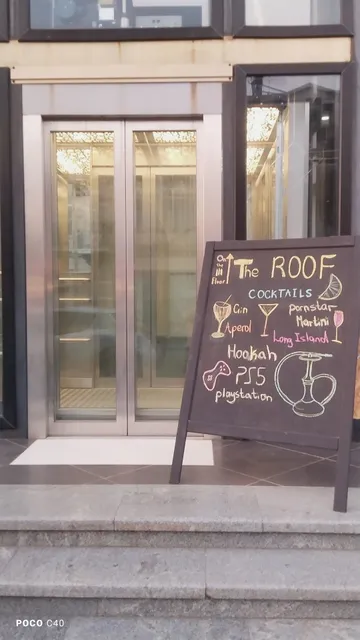 On
the
III
Floor
The ROOF
COCKTAILS
Gin pornstar
Aperol Martini
Long Island
Hookah
PS5
playstation
POCO C40